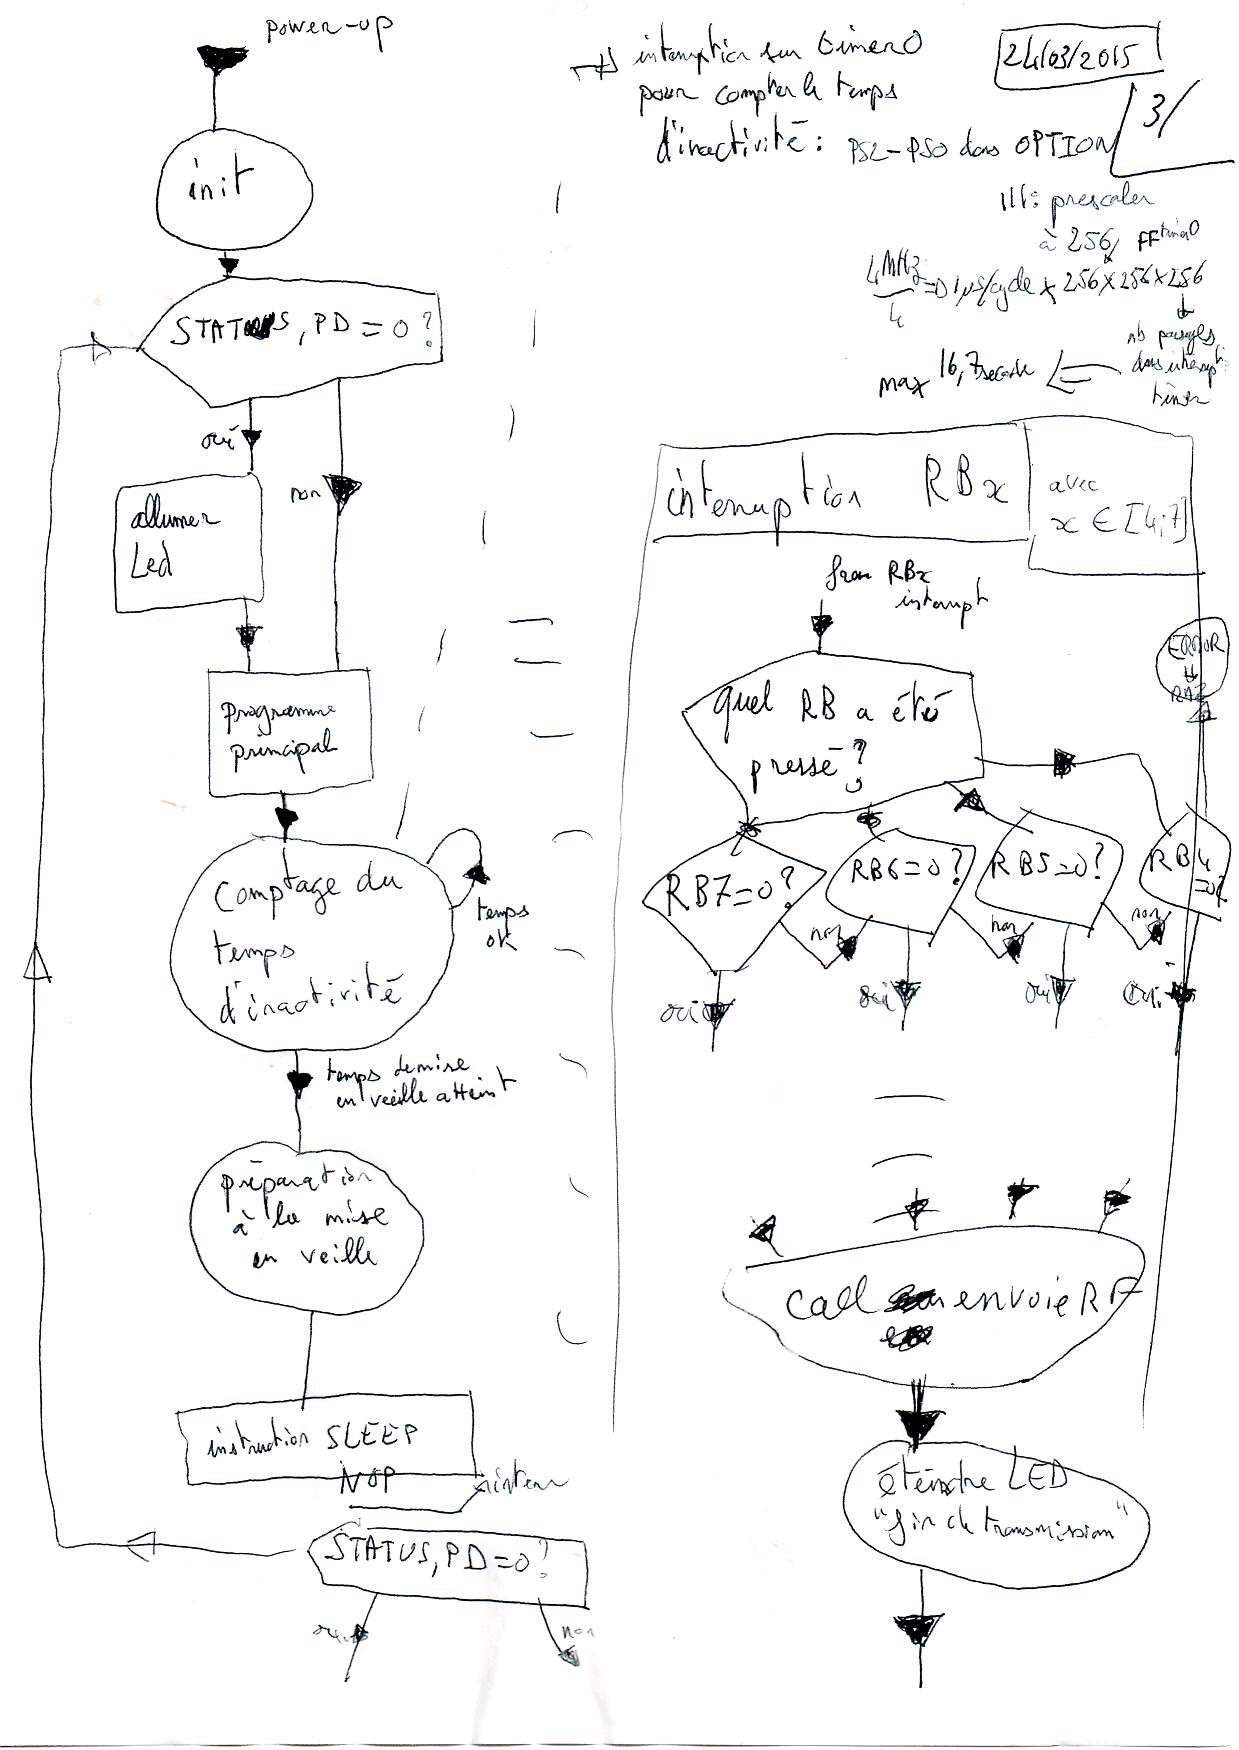 power-up
init
STATUS, PD = 0 ?
oui
non
allumer
Led
programme
principal
Comptage du
temps
d'inactivité
temps
ok
temps de mise
en veille atteint
préparation
à la mise
en veille
instruction SLEEP
NOP
STATUS, PD = 0 ?
non
interruption sur timer0
pour compter le temps
d'inactivité : PS2-PS0 dans OPTION
24/03/2015
3/
111: prescaler
à 256, FF timer0
4MHz/4 => 1µs/cycle x 256x256x256
nb passages
dans interrupt
timer
max 16,7 seconde
interruption RBx
avec
x ∈ [4;7]
from RBx
interrupt
ERROR
RAZ
quel RB a été
pressé ?
RB7=0?
RB6=0?
RB5=0?
RB4
=0?
non
non
non
oui
oui
oui
oui
call envoieRF
éteindre LED
"fin de transmission"